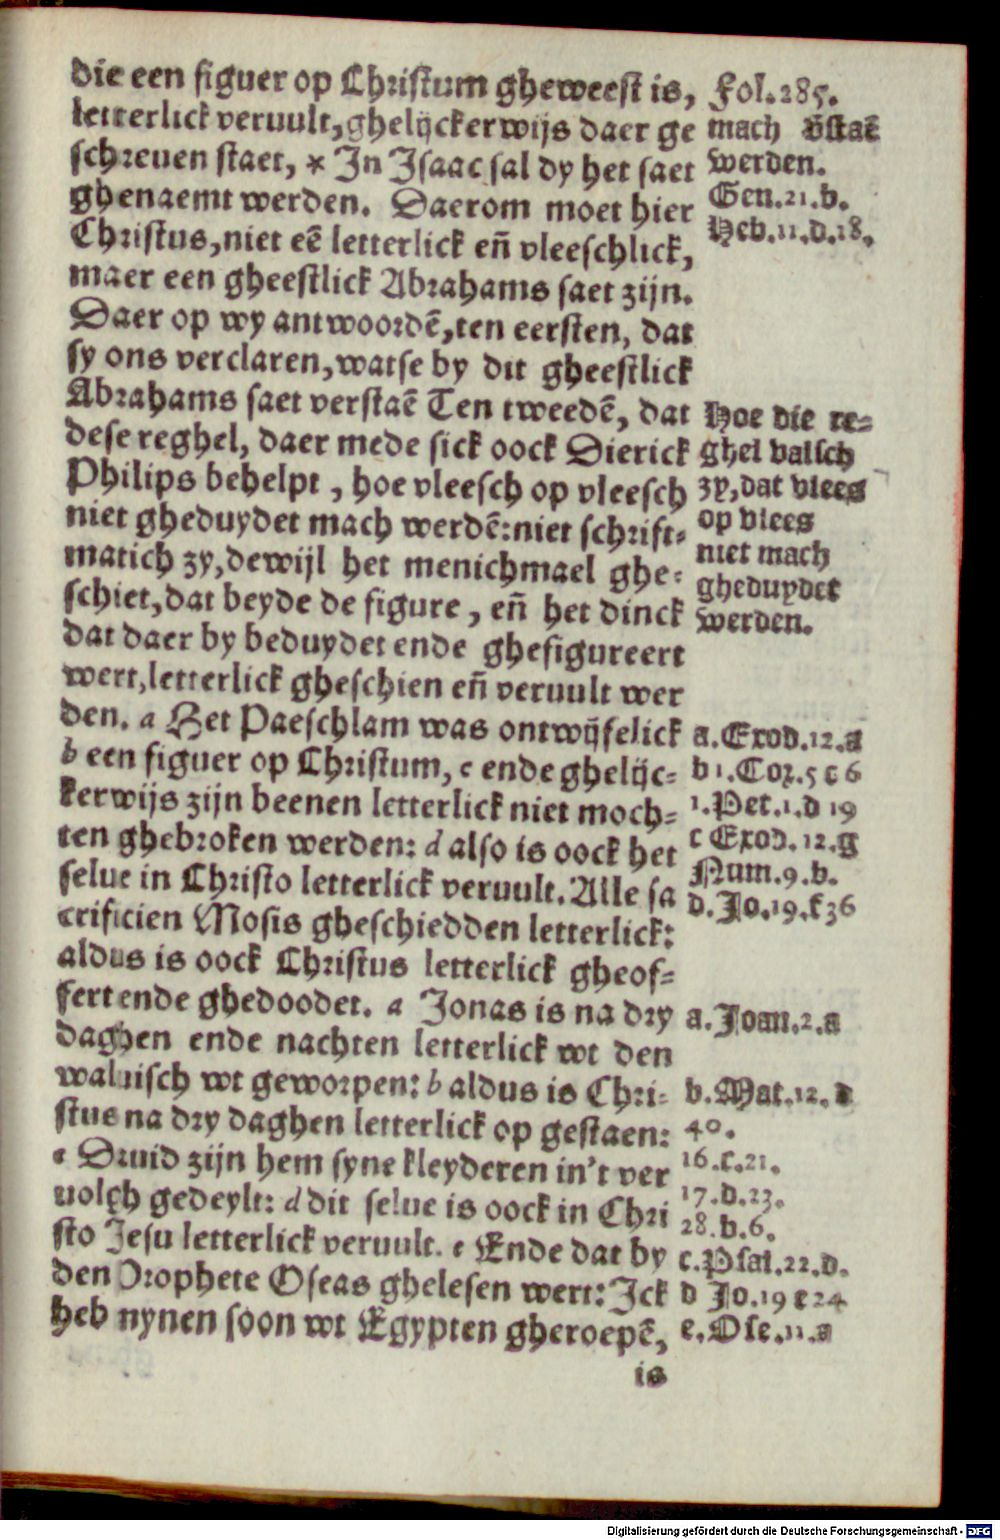 die een figuer op Christum gheweest is,
letterlick veruult, ghelijckerwijs daer ge
schreuen staet, * In Isaac sal dy het saet
ghenaemt werden. Daerom moet hier
Christus, niet eē letterlick eñ vleeschlick,
maer een gheestlick Abrahams saet zijn.
Daer op wy antwoordē, ten eersten, dat
sy ons verclaren, watse by dit gheestlick
Abrahams saet verstaē Ten tweedē, dat
dese reghel, daer mede sick oock Dierick
Philips behelpt, hoe vleesch op vleesch
niet gheduydet mach werdē: niet schrift-
matich zy, dewijl het menichmael ghe-
schiet, dat beyde de figure, eñ het dinck
dat daer by beduydet ende ghefigureert
wert, letterlick gheschien eñ veruult wer
den. a Het Paeschlam was ontwijfelick
b een figuer op Christum, c ende ghelijc-
kerwijs zijn beenen letterlick niet moch-
ten ghebroken werden: d also is oock het
selue in Christo letterlick veruult. Alle sa
crificien Mosis gheschiedden letterlick:
aldus is oock Christus letterlick gheof-
fert ende ghedoodet. a Jonas is na dry
daghen ende nachten letterlick wt den
waluisch wt geworpen: b aldus is Chri-
stus na dry daghen letterlick op gestaen:
c Druid zijn hem syne kleyderen in't ver
uolgh gedeylt: d dit selue is oock in Chri
sto Jesu letterlick veruult. e Ende dat by
den Prophete Oseas ghelesen wert: Ick
heb mynen soon wt Egypten gheroepē,
is
Fol. 285.
mach v̄staē
werden.
Gen. 21. b.
Heb. 11. d. 18.
Hoe die re-
ghel valsch
zy, dat vlees
op vlees
niet mach
gheduydet
werden.
a. Exod. 12. a
b 1. Cor. 5 c 6
1. Pet. 1. d 19
c Exod. 12. g
Num. 9. b.
d. Jo. 19. f 36
a. Joan. 2. a
b. Mat. 12. d
40.
16. c. 21.
17. d. 23.
28. b. 6.
c. Psal. 22. d.
d Jo. 19 e 24
e. Ose. 11. a
Digitalisierung gefördert durch die Deutsche Forschungsgemeinschaft - DFG